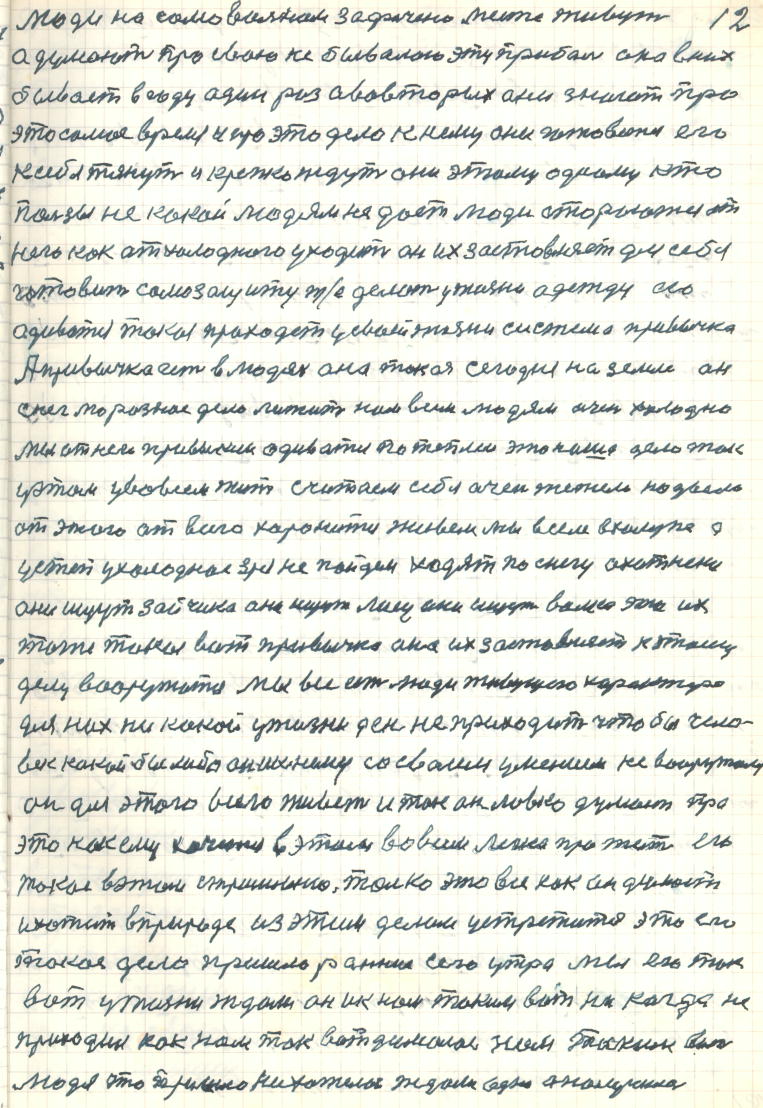 12
люди на самовольном захвачено месте живут
а думают про свою не бывалою эту прибал она в них
бывает в году один раз а вовторых они знают про
это самое время чего это дело к нему они готовятся его
к себя тянут и крепко ждут они этому одному кто
ползы не какой людям не дает люди сторонятся от
него как от холодного уходит он их заставляет для себя
готовит самозащиту т/е делат у жизни одежду его
адиватся такая проходет у своей жизни система привычка
А привычка ест в людях она такая сегодня на земле он
снег морозное дело лежит нам всем людям очен холодно
мы от него привыкли одиватся потеплей это наше дело так
у этом у вовсем жит считаем себя очен тежело надоело
от этого от всего хоронится живем мы в селе в халупе а
у степ у холодное зря не пойдем ходят по снегу охотнеки
они ищут зайчика они ищут лису они ищут волка это их
тоже такая вот привычка она их заставляет к этому
делу вооружатся Мы все ест люди живущего характера
для них ни какой у жизни ден не приходит чтобы чело-
век какой бы либо он ик нему со своим умением не вооружался
он для этого всего живет и так он ловко думает про
это как ему хочется в этом вовсем легко прожит его
такое в этом стремление, только это все как он думает
и хотит в природе из этим делом устретится это его
такое дело пришло ранние сего утра мы его так
вот у жизни ждали он ик нам таким вот ни когда не
приходил как нам так вот думалос нам таким вот
людя что пришло ни хотелос ждали одно а получилос